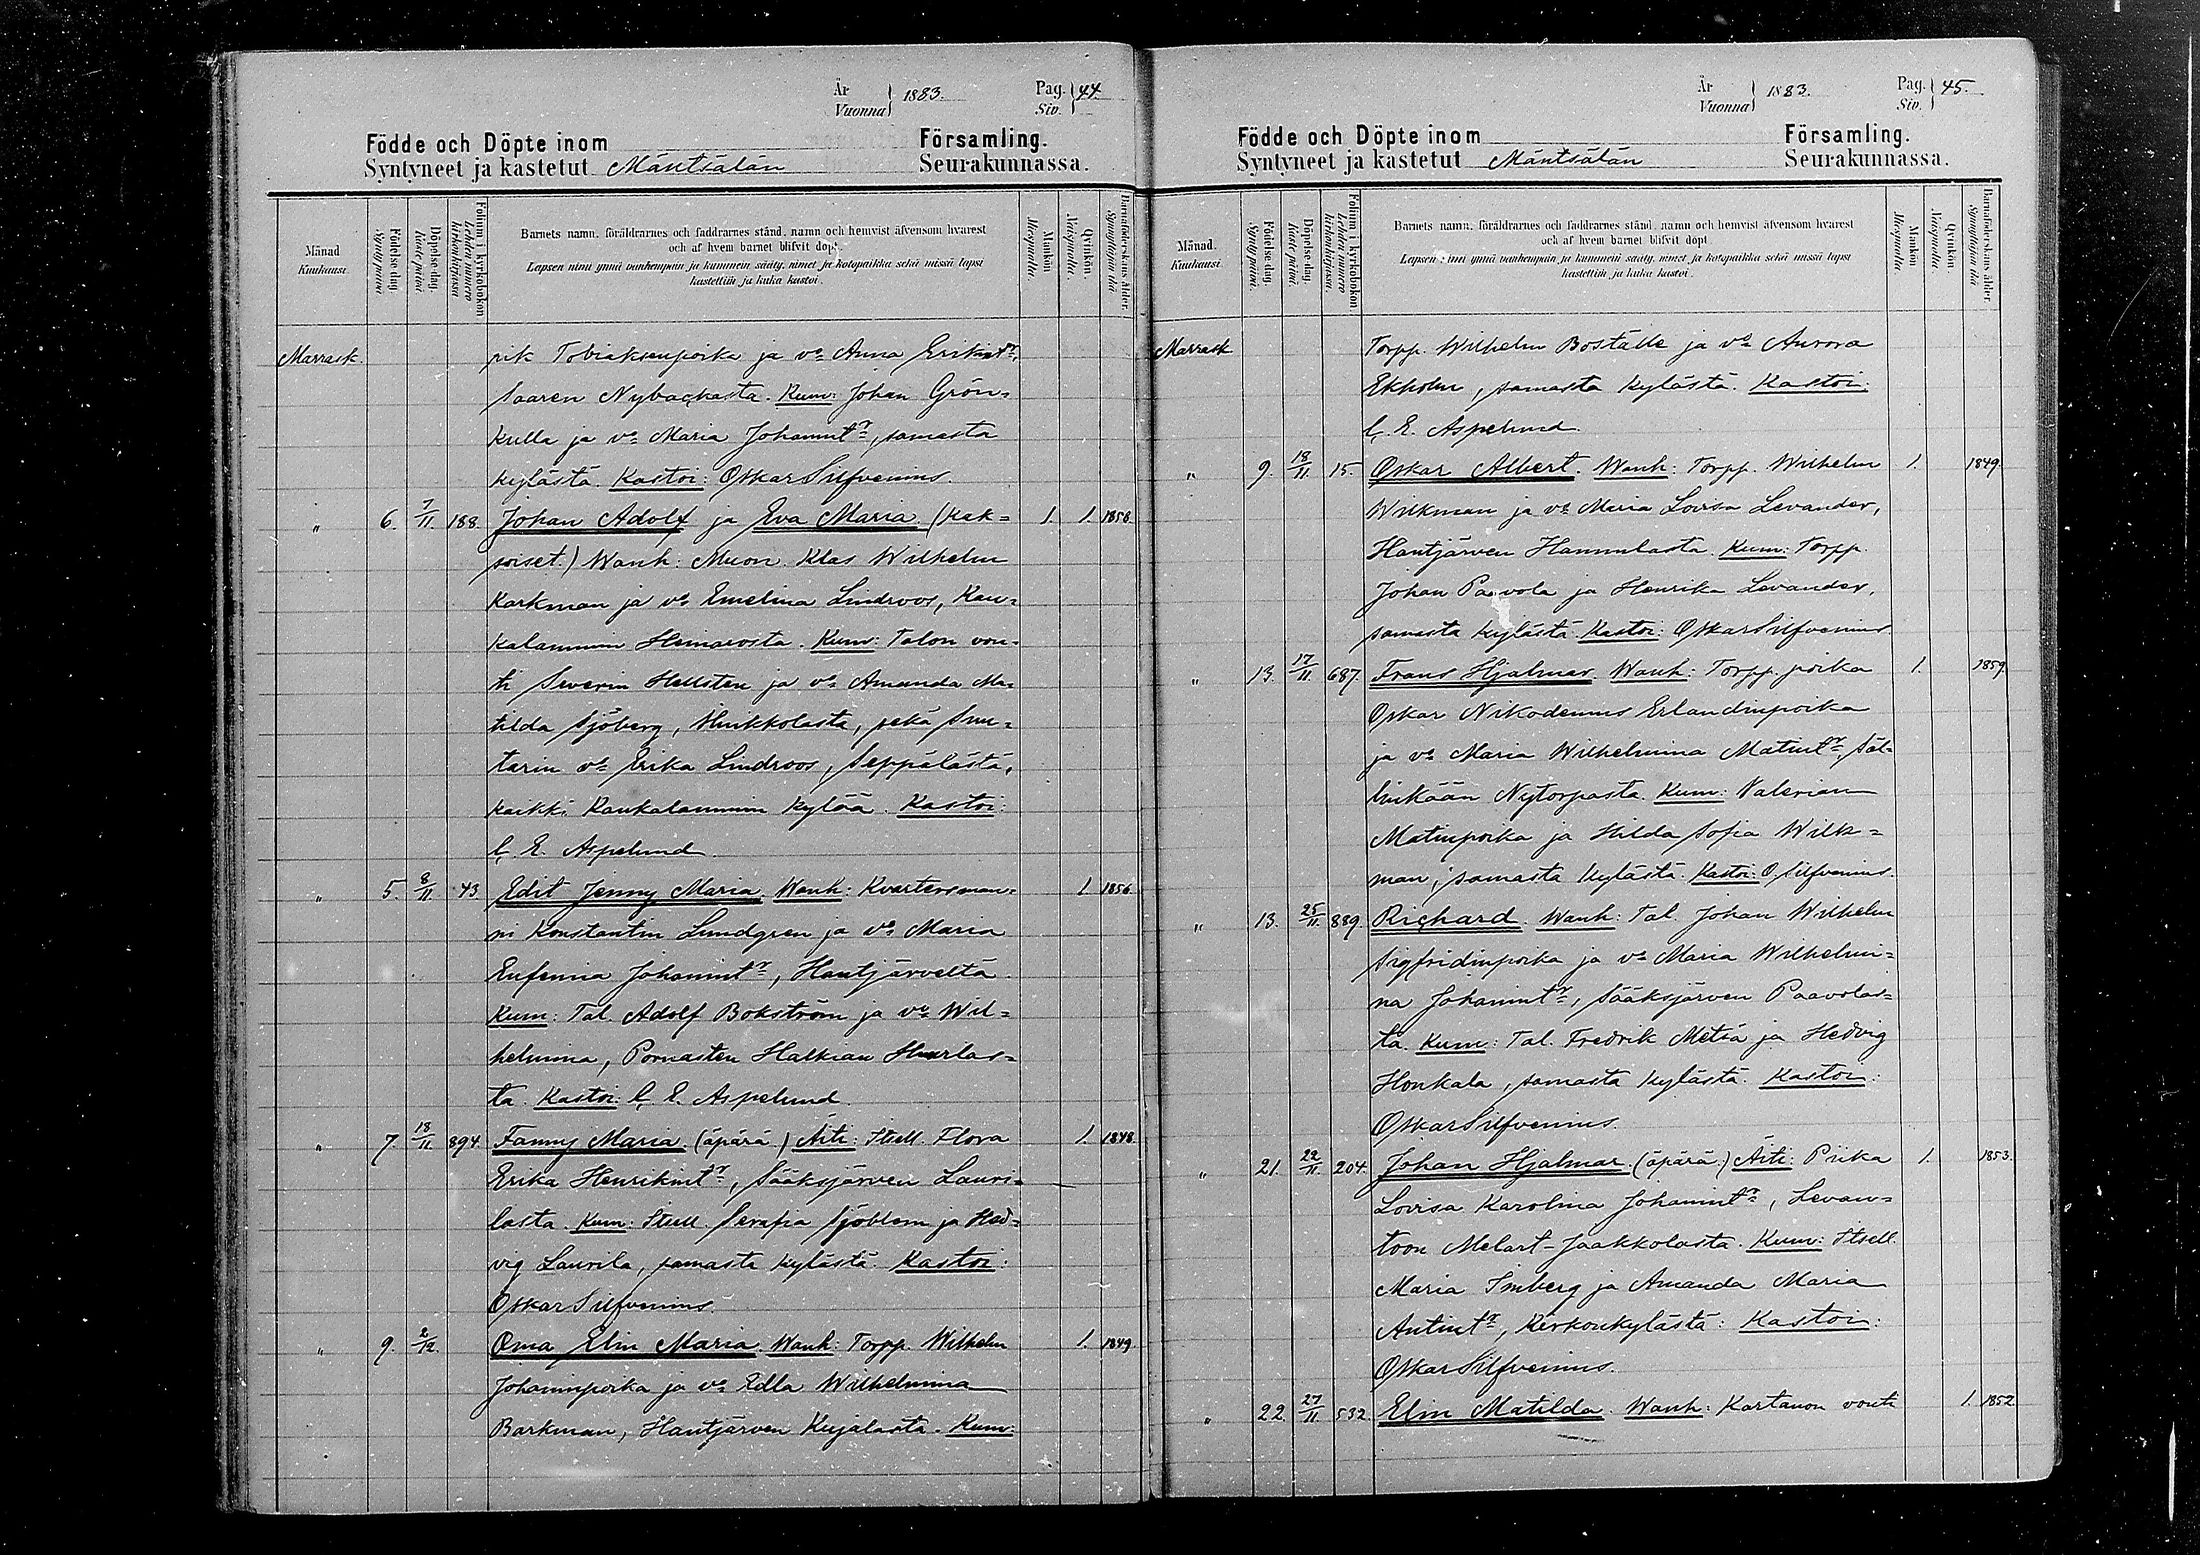 År
Vuonna 1883.
Pag.
Siv. 44.
Födde och Döpte inom Församling.
Syntyneet ja kastetut Mäntsälän Seurakunnassa.
Månad
Kuukausi.
Födelse dag.
Syntypäivä.
Döpelse dag.
Kaste päivä.
Folium i kyrkobokon
Lehden numero kirkonkirjassa
Barnets namn, föräldrarnes och faddrarnes stånd, namn och hemvist äfvensom hvarest
och af hvem barnet blifvit döpt.
Lapsen nimi ynnä vanhempain ja kummein sääty, nimet ja kotopaikka sekä missä lapsi
kastettiin ja kuka kastoi.
Mankön
Miespuolta.
Qvinkön.
Naispuolta.
Barnaföderskans ålder.
Synnyttäjän ikä
Marrask. rik Tobiaksenpoika ja vo Anna Erikintr,
Saaren Nybackasta. Kum: Johan Grön=
kulla ja vo Maria Johannintr, samasta
kylästä. Kastoi: Oskar Silfvenius.
" 6. 7/11 188. Johan Adolf ja Eva Maria (Kak= 1. 1. 1858.
soiset.) Wanh: Muon. Klas Wilhelm
Karkman ja vo Emelina Lindroos, Kau=
kalammin Heinarosta. Kum: Talon vou=
ti Severin Hellsten ja vo Amanda Ma=
tilda Sjöberg, Huikkolasta, sekä Suu=
tarin vo Erika Lindroos, Seppälästä,
kaikki Kaukalammin kylää. Kastoi:
C. E. Aspelund.
" 5. 8/11 43. Edit Jenny Maria. Wanh: Kvartersman= 1. 1856
ni Konstantin Lundgren ja vo Maria
Eufemia Johannintr, Hautjärveltä.
Kum: Tal. Adolf Bokström ja vo Wil=
helmina, Pornasten Halkian
ta. Kastoi: C. E. Aspelund.
" 7. 18/11 894. Fanny Maria. (äpärä) Äiti: Itsell. Flora 1. 1848.
Erika Henrikintr, Sääksjärven Lauri=
lasta. Kum: Itsell. Serafia Sjöblom ja Hed=
vig Laurila, samasta kylästä. Kastoi:
Oskar Silfvenius.
" 9. 2/12. Oma Elin Maria. Wanh: Torpp. Wilhelm 1. 1849.
Johaninpoika ja vo Edla Wilhelmina
Barkman, Hautjärven Kujalasta. Kum:
År
Vuonna 1883.
Pag.
Siv. 45.
Födde och Döpte inom Församling.
Syntyneet ja kastetut Mäntsälän Seurakunnassa.
Månad.
Kuukausi.
Födelse dag.
Syntypäivä.
Döpelse dag.
Kaste päivä.
Folium i kyrkobokon
Lehden numero kirkonkirjassa.
Barnets namn, föräldrarnes och faddrarnes stånd, namn och hemvist äfvensom hvarest
och af hvem barnet blifvit döpt.
Lapsen nimi ynnä vanhempain ja kummein sääty, nimet ja kotopaikka sekä missä lapsi
kastettiin ja kuka kastoi.
Mankön
Miespuolta
Qvinkön.
Naispuolta.
Barnaföderskans ålder.
Synnyttäjän ikä
Marrask. Torpp. Wilhelm Boställe ja vo Aurora
Ekholm, samasta kylästä. Kastoi:
C. E. Aspelund.
" 9. 18/11 15. Oskar Albert. Wanh: Torpp. Wilhelm 1. 1849.
Wirkman ja vo Maria Lovisa Levander,
Hautjärven Hannulasta. Kum: Torpp.
Johan Paavola ja Henrika Levander,
samasta kylästä. Kastoi: Oskar Silfvenius.
" 13. 17/11 687. Frans Hjalmar. Wanh: Torpp. poika 1. 1859.
Oskar Nikodemus Erlandinpoika
ja vo Maria Wilhelmina Matintr, Säl=
linkään Nytorpasta. Kum: Valerian
Matinpoika ja Hilda Sofia Wilk=
man, samasta kylästä. Kastoi: O. Silfvenius.
" 13. 25/11 889. Richard. Wanh: Tal. Johan Wilhelm
Sigfridinpoika ja vo Maria Wilhelmi=
na Johannintr, Sääksjärven Paavolas=
ta. Kum: Tal. Fredrik Metsä ja Hedvig
Honkala, samasta kylästä. Kastoi:
Oskar Silfvenius.
" 21. 22/11. 204. Johan Hjalmar. (äpärä.) Äiti: Piika 1. 1853.
Lovisa Karolina Johannintr, Levan=
toon Melart-Jaakkolasta. Kum: Itsell.
Maria Imberg ja Amanda Maria
Antintr, Kirkonkylästä: Kastoi:
Oskar Silfvenius.
" 22. 27/11 532. Elin Matilda. Wanh: Kartanon vouti 1. 1852